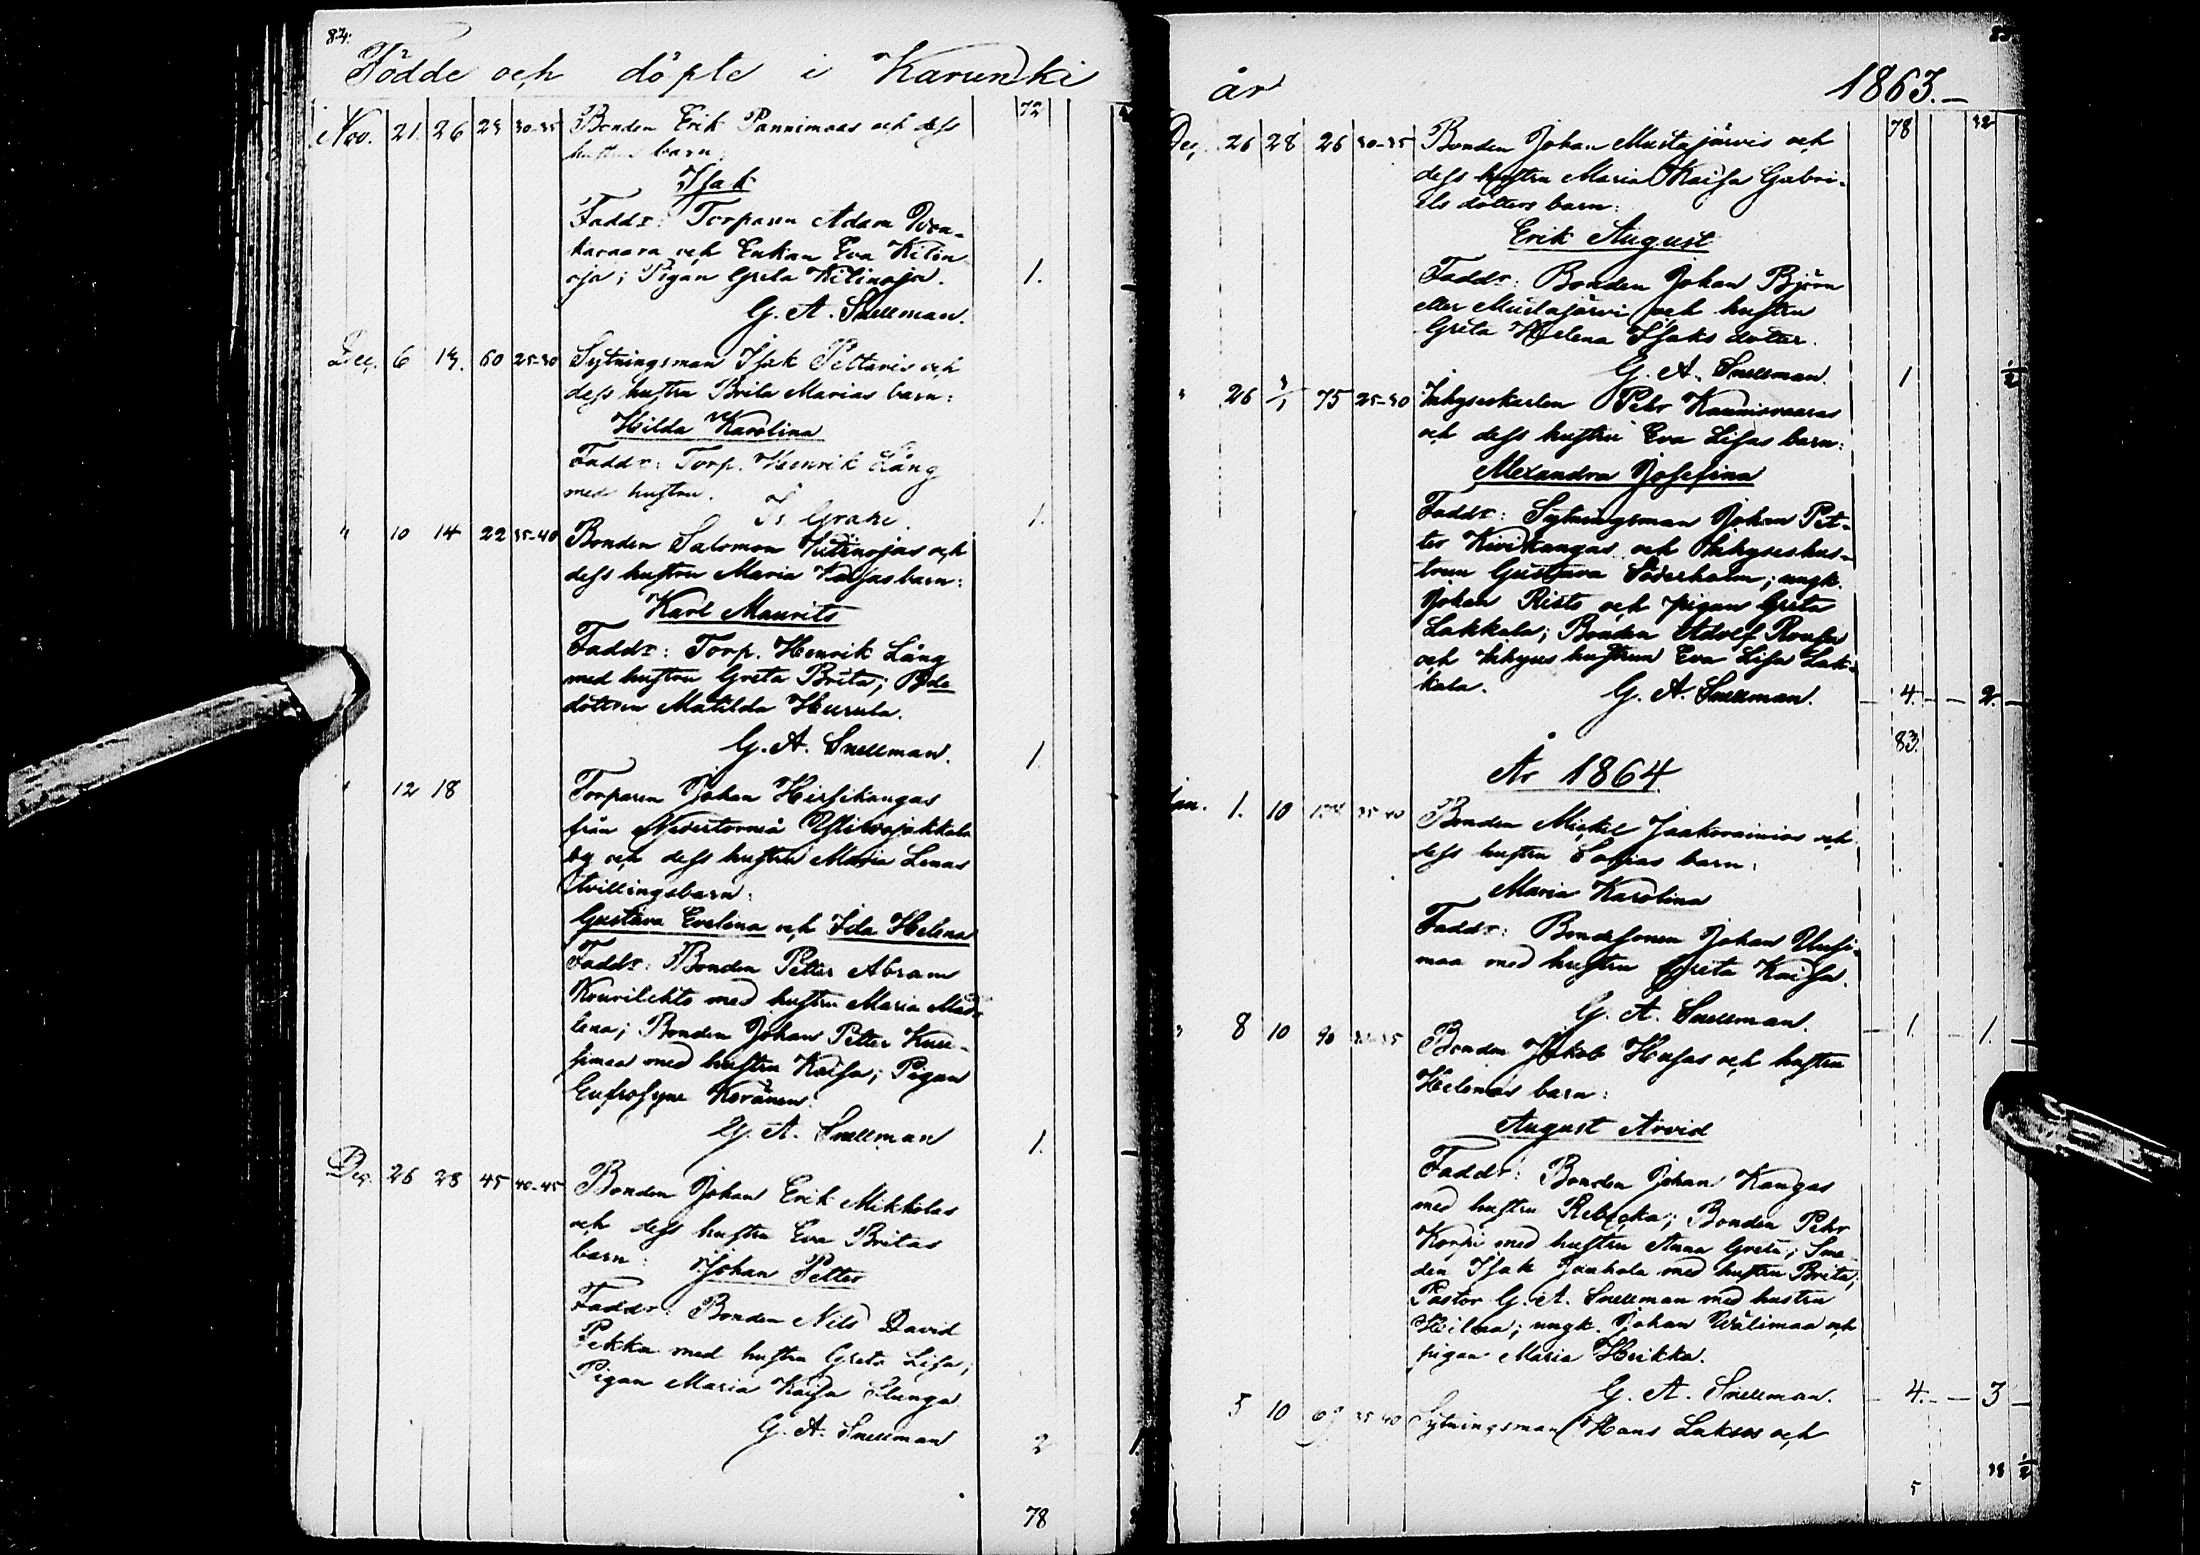 84.
Födde och döpte i Karunki
72
Nov. 21. 26 29 30-35 Bonden Erik Pannimaas och dess
hustrus barn:
Isak
Faddr: Torparen Adam
och Enkan Eva Kilin
oja; Pigan Greta Kilinoja. 1.
G. A. Snellman.
Dec. 6 13. 60 25-30 Sytningsman Isak Pettaris och
dess hustru Brita Marias barn:
Hilda Karolina
Faddr: Torp. Henrik Lång
med hustru. 1.
" 10 14 22 35-40 Bonden Salomon Kilinojas och
dess hustru Maria Kaisas barn:
Karl Maurits
Faddr: Torp. Henrik Lång
med hustru Greta Brita; Bde
dotteren Matilda Hurula.
G. A. Snellman. 1.
" 12 18 Torparen Johan Hirsikangas
från Nedertorneå
by och dess hustru Maria Lenas
tvillingsbarn:
Gustava Evelina och Ida Helena
Faddr: Bonden Petter Abram
Kourilehto med hustru Maria Mad-
lena; Bonden Johan Petter Kuu-
simaa med hustru Kaisa; Pigan
Eufrosyne Keränen.
G. A. Snellman 1.
Dec. 26 28 45 40-45 Bonden Johan Erik Mikkolas
och dess hustru Eva Britas
barn: Johan Petter
Faddr: Bonden Nils David
Pekka med hustru Greta Lisa;
Pigan Maria Kaisa Slunga
G. A. Snellman 2
78
år 1863.-
78 32
Dec. 26 28 26 30-35 Bonden Johan Mustajärvis och
dess hustru Maria Kaisa Gabri-
els dotters barn:
Erik August
Faddr: Bonden Johan Björn
eller Mustajärvi och hustru
Greta Helena Isaks dotter.
G. A. Snellman. 1 1/2
" 26 3/1 75 25-30 Inhyseskarlen Pehr Kaunisvaaras
och dess hustru Eva Lisas barn:
Alexandra Josefina
Faddr: Sytningsman Johan Pet-
ter Kivikangas och Inhyseshus-
trun Gustava Söderholm; ungk.
Johan Risto och pigan Greta
Lakkala; Bonden Adolf Rousu
och Inhyses hustrun Eva Lisa Lak-
kala. G. A. Snellman. 4. 2.
83.
År 1864
Jan. 1. 10 35-40 Bonden Mickel Jaakovainios och
dess hustru Sofias barn:
Maria Karolina
Faddr: Bondesonen Johan Uusi-
maa med hustru Greta Kaisa.
G. A. Snellman. 1. 1.
" 8 10 90 Bonden Jakob Husas och hustru
Helenas barn:
August Arvid
Faddr: Bonden Johan Kangas
med hustru Rebecka; Bonden Pehr
Korpi med hustru Anna Greta; Sme
den Isak Jauhola med hustru Brita;
Pastor G. A. Snellman med hustru
Hilma; ungk. Johan Välimaa och
pigan Maria Heikka.
G. A. Snellman. 4. 3
5 10 69 35-40 Sytningsman Hans Laksos och
38 1/2
5